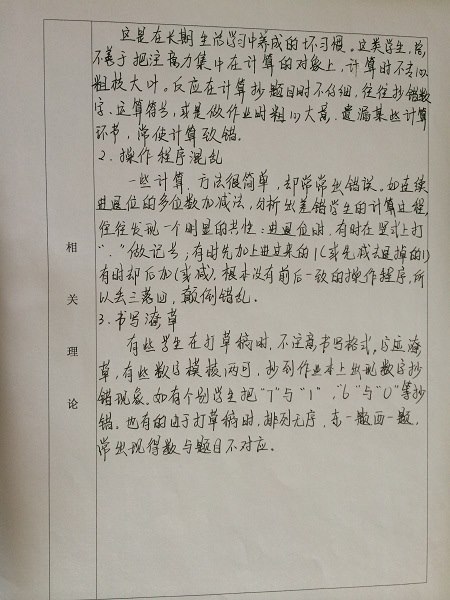 相关理论
这是在长期生活学习中养成的坏习惯。这类学生,
不善于把注意力集中在计算的对象上,计算时不专心
粗枝大叶。反应在计算抄题目时不仔细,往往抄错数
字、运算符号,或是做作业时粗心大意、遗漏某些计算
环节,常使计算致错。
2、操作程序混乱
一些计算、方法很简单,却常常出错误。如连续
进退位的多位数加减法,分析出差错学生的计算过程,
往往发现一个明显的共性:进退位时,有时在竖式上打
“.”做记号;有时先加上进过来的1(或先减去退掉的1)
有时却后加(或减),根本没有前后一致的操作程序,所
以丢三落四,颠倒错乱。
3、书写潦草
有些学生在打草稿时,不注意书写格式,字迹潦
草,有些数字模棱两可,抄到作业本上出现数字抄
错现象。如有个别学生把“7”与“1”,“6”与“0”等抄
错。也有的由于打草稿时,排列无序,东一题西一题,
常出现得数与题目不对应。